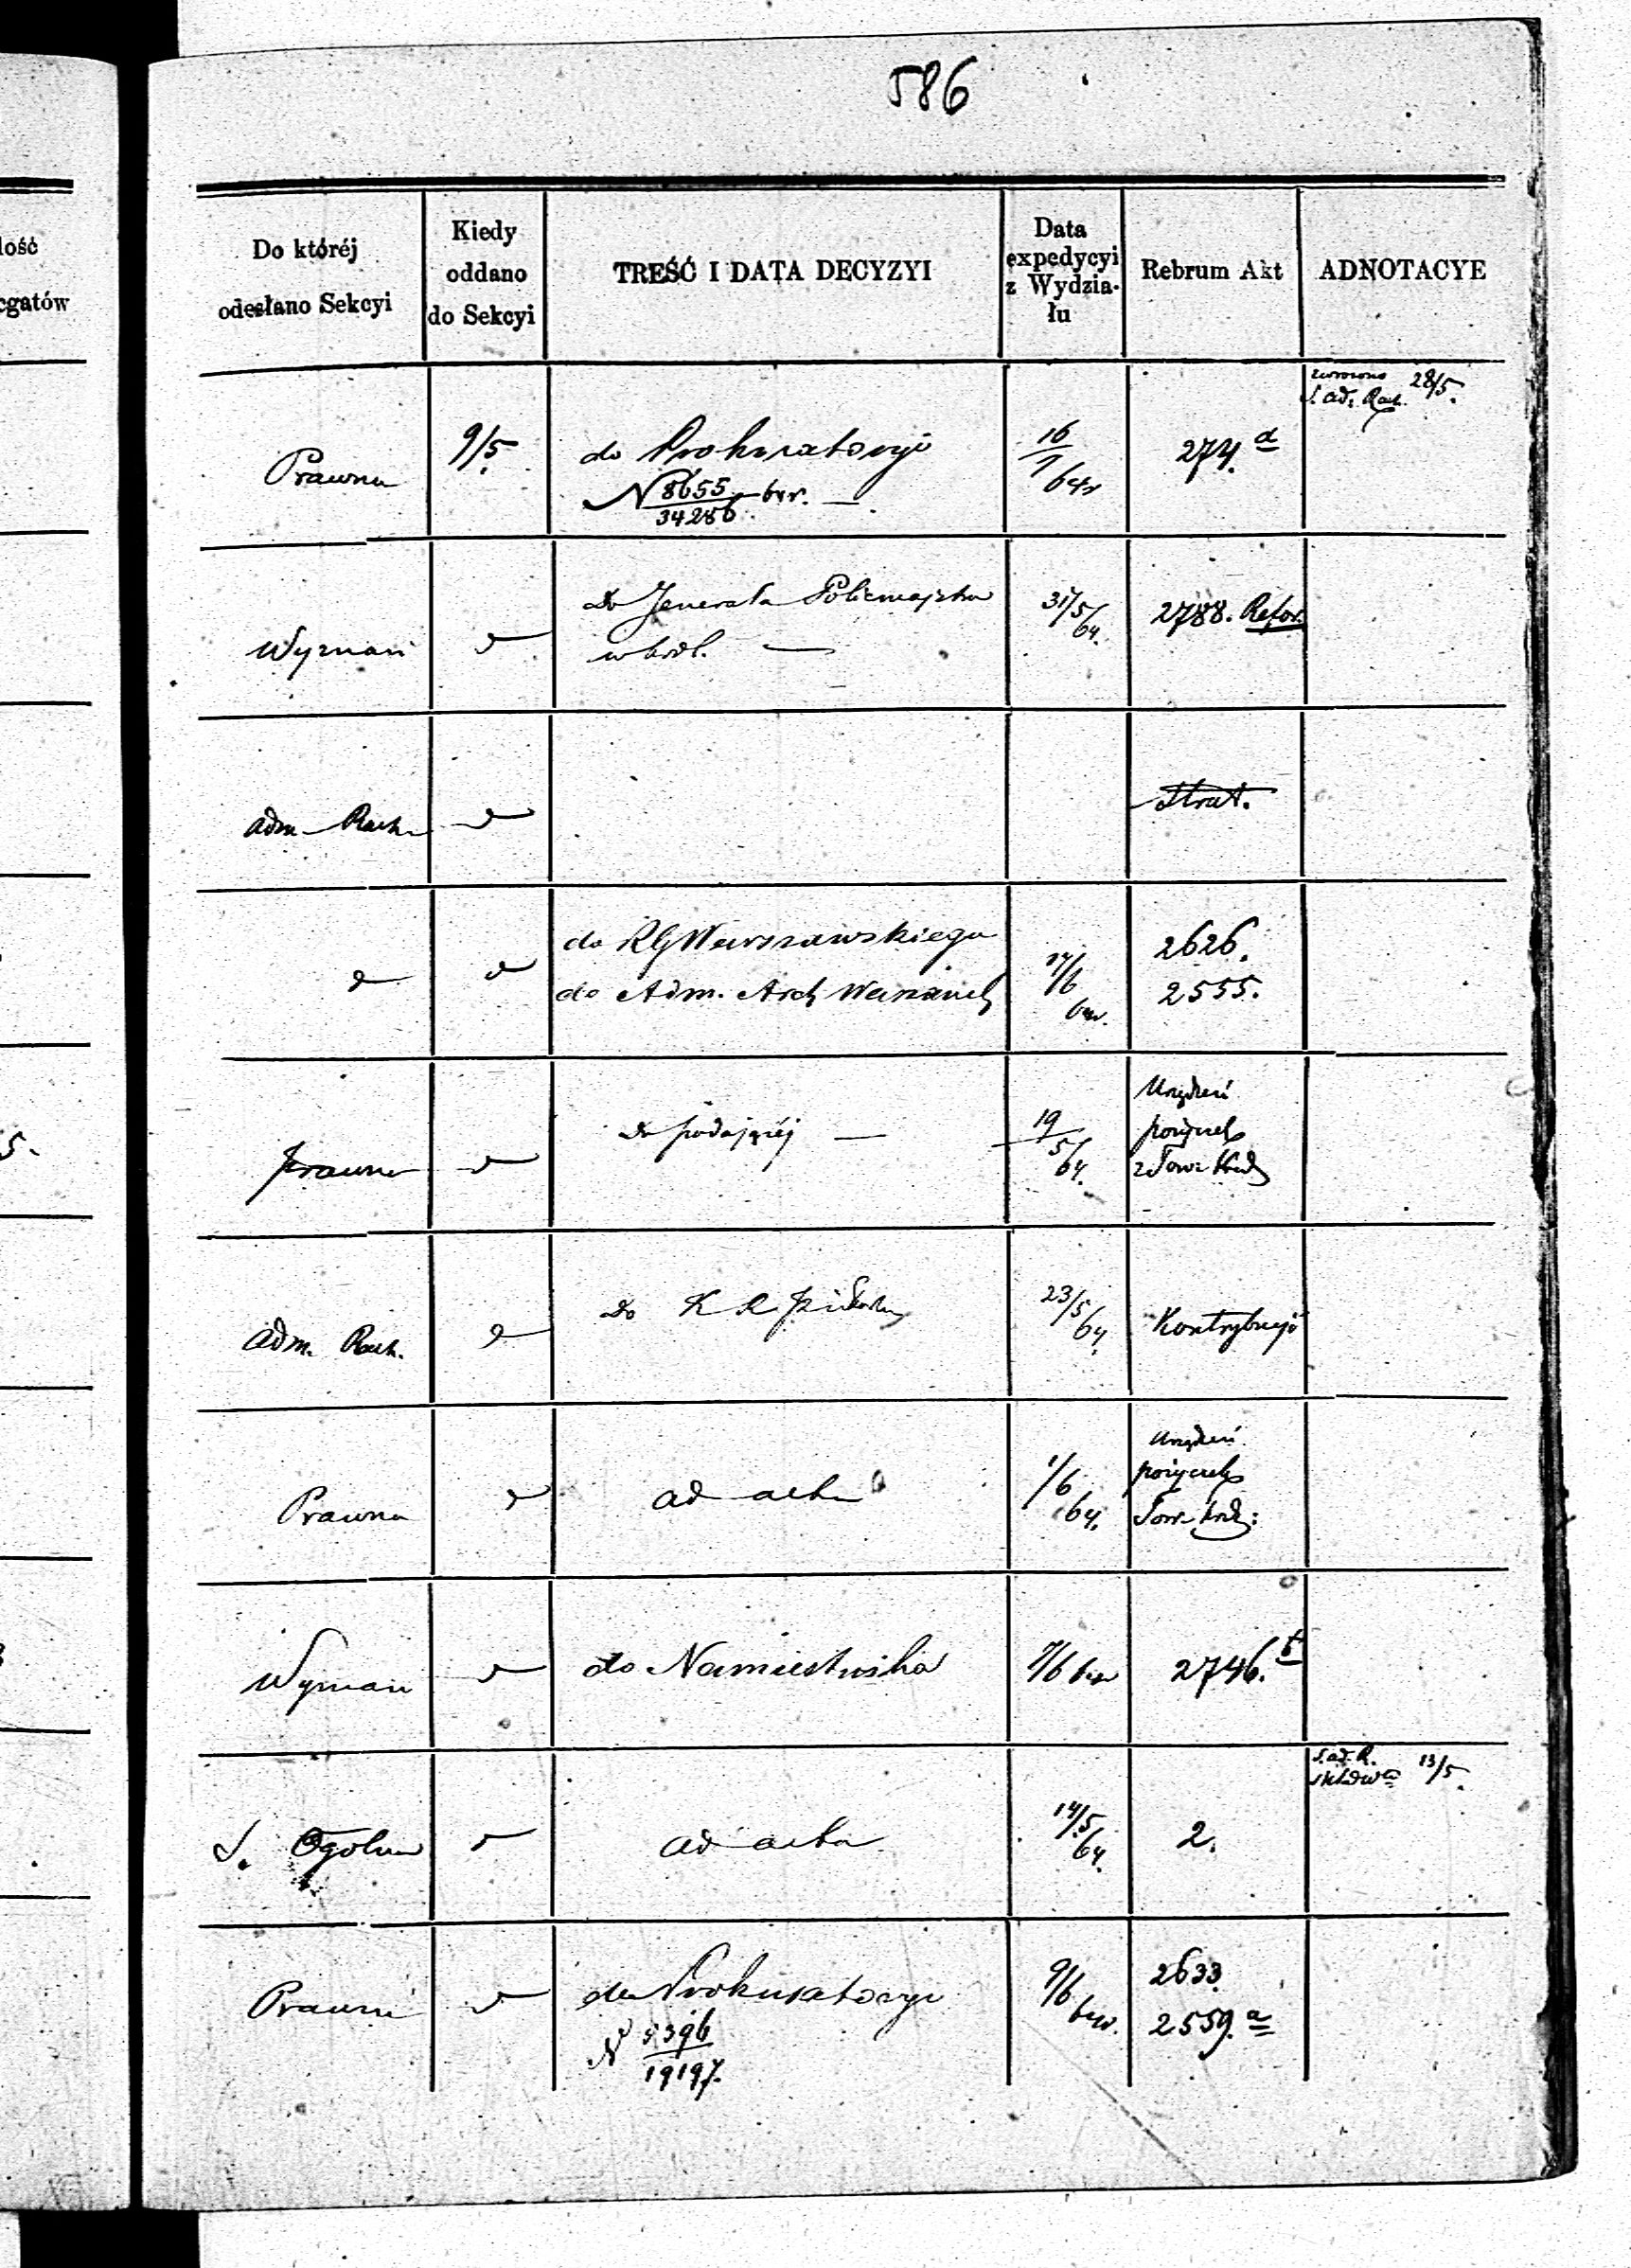 586
lość
cgatów
Do któréj
odesłano Sekcyi
Kiedy
oddano
do Sekcyi
TREŚĆ I DATA DECYZYI
Data
expedycyi
z Wydzia-
łu
Rebrum Akt
ADNOTACYE
Prawna
9/5
do Prokuratoryi
N 8655/34286
16/7
274. a
S. ad. Rach. 28/5.
Wyznań
Do Jenerała Policmajstra
31/5/64.
2788. Refor.
Adm. Rach.
Strat.
do RG Warszawskiego
do Adm. Arch
17/6
2626.
2555.
Prawna
Do podającéj
19/5/64.
Urządzeń
pożyczek
z Tow. Kred
Adm. Rach.
Do K R
23/5/64
Kontrybucyi
Prawna
ad acta
1/6 64.
Urządzeń
pożyczek
Tow. Kred:
Wyznań
do Namiestnika
7/6
2746. b
S. Ogólna
ad acta
14/5/64.
2.
S. ad. R. 13/5.
Prawna
do Prokuratoryi
N 5396/19197.
9/6
2633
2559. a